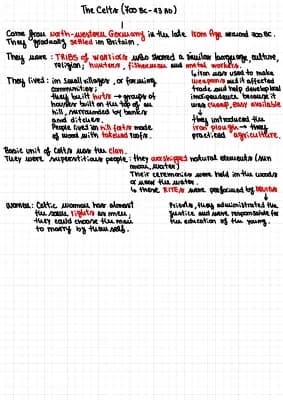 The Celts (700 BC - 43 AD)
Came from north-western Germany in the late Iron Age around 700 BC.
They gradually settled in Britain.
They were: TRIBES of WARRIORS who shared a similar language, culture,
religion; hunters, fishermen and metal workers.
↳ Iron was used to make
weapons and it affected
trade and help develop local
independence because it
was cheap, easy available
↓
they introduced the
iron plough → they
practised agriculture.
They lived: in small villages, or farming
communities;
they built huts → groups of
houses built on the top of an
hill, surrounded by banks
and ditches.
People lived in hill forts made
of wood with tatched roofs.
Basic unit of Celts was the clan.
They were superstitious people: they worshipped natural elements (sun
moon, water)
Their ceremonies were held in the woods
or near the water.
↳ these RITES were performed by DRUIDS
↓
Priests, they administrated the
justice and were responsible for
the education of the young.
WOMEN: Celtic women has almost
the same rights as men;
they could choose the man
to marry by themself.